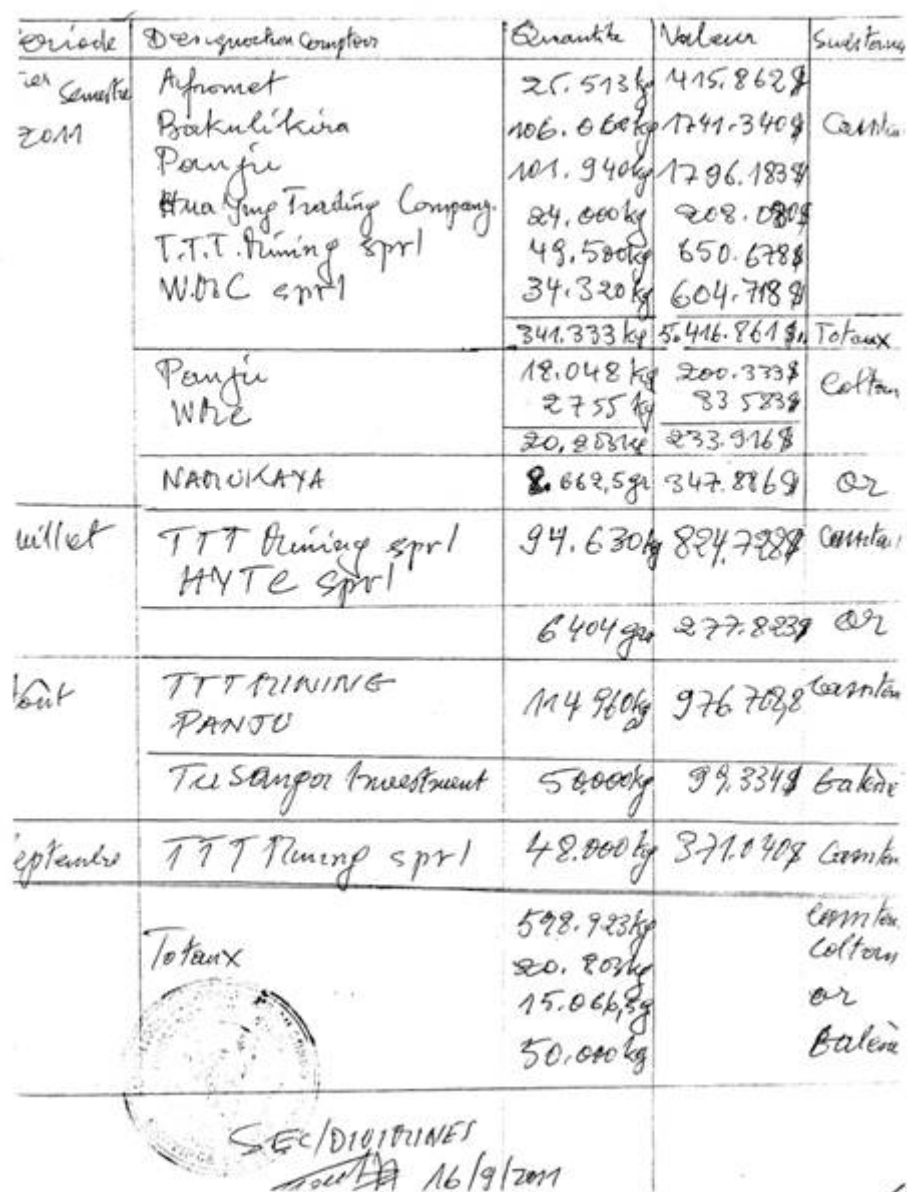 ériode Designation Comptoir Quantité Valeur Substances
1er Semestre Afromet 25.513kg 415.862$
2011 Bakulikira 106.060kg 1741.340$ Cassité
Panju 101.940kg 1796.183$
Hua Ying Trading Company. 24.000kg 208.080$
T.T.T. Mining sprl 49.500kg 650.678$
WMC sprl 34.320kg 604.718$
341.333 kg 5.416.861$ Totaux
Panju 18.048 kg 200.333$ Coltan
WMC 2755 kg 83583$
20.803kg 233.916$
NAMUKAYA 8.662,5gr 347.886$ or
uillet TTT Mining sprl 94.630kg 824.728$ Cassité
HYTC sprl
6404 gr 277.823$ or
oût TTT MINING 114960kg 976702,8 Cassité
PANJU
TuSangor Investment 50.000kg 99.334$ Galène
eptembre TTT Mining sprl 48.000kg 371.040$ Cassité
Totaux 598.923kg Cassité
20.803kg Coltan
15.066,5g or
50.000kg Galène
SEC/DIVIMINES
16/9/2011